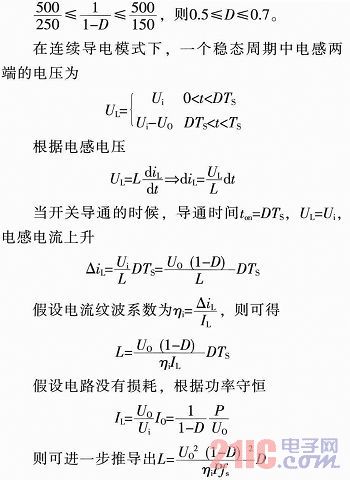 500/250≤1/(1-D)≤500/150，则0.5≤D≤0.7。
在连续导电模式下，一个稳态周期中电感两
端的电压为
U_L={U_i 0<t<DT_S
U_i-U_O DT_S<t<T_S
根据电感电压
U_L=L di_L/dt⇒di_L=U_L/L dt
当开关导通的时候，导通时间t_on=DT_S，U_L=U_i，
电感电流上升
Δi_L=U_i/L DT_S=U_O (1-D)/L DT_S
假设电流纹波系数为η_i=Δi_L/I_L，则可得
L=U_O (1-D)/η_iI_L DT_S
假设电路没有损耗，根据功率守恒
I_L=U_O/U_i I_O=1/(1-D) P/U_O
则可进一步推导出L=U_O² (1-D)²/η_iPf_s D
21IC电子网
.com